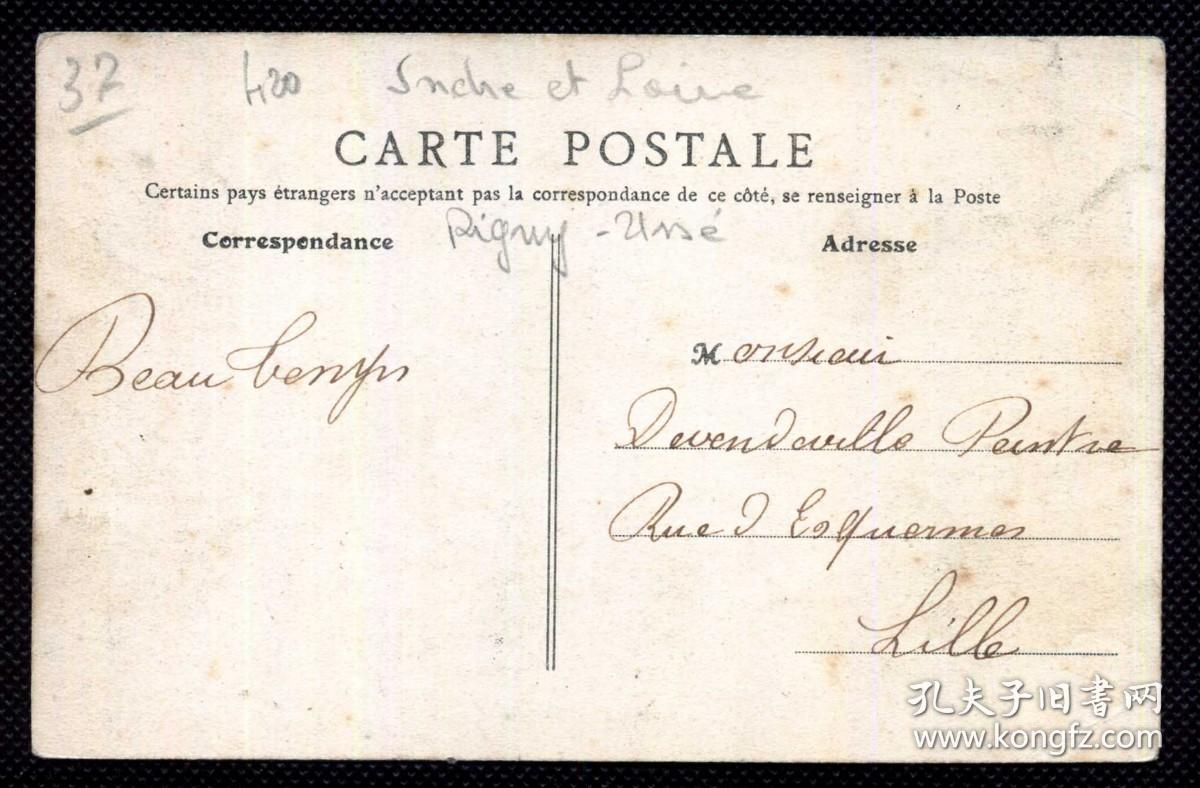 37 420 Indre et Loire
CARTE POSTALE
Certains pays étrangers n'acceptant pas la correspondance de ce côté, se renseigner à la Poste
Rigny-Ussé
Correspondance
Adresse
Beau temps
Monsieur
Devendeville Peintre
Rue d Esquermes
Lille
孔夫子旧书网
www.kongfz.com